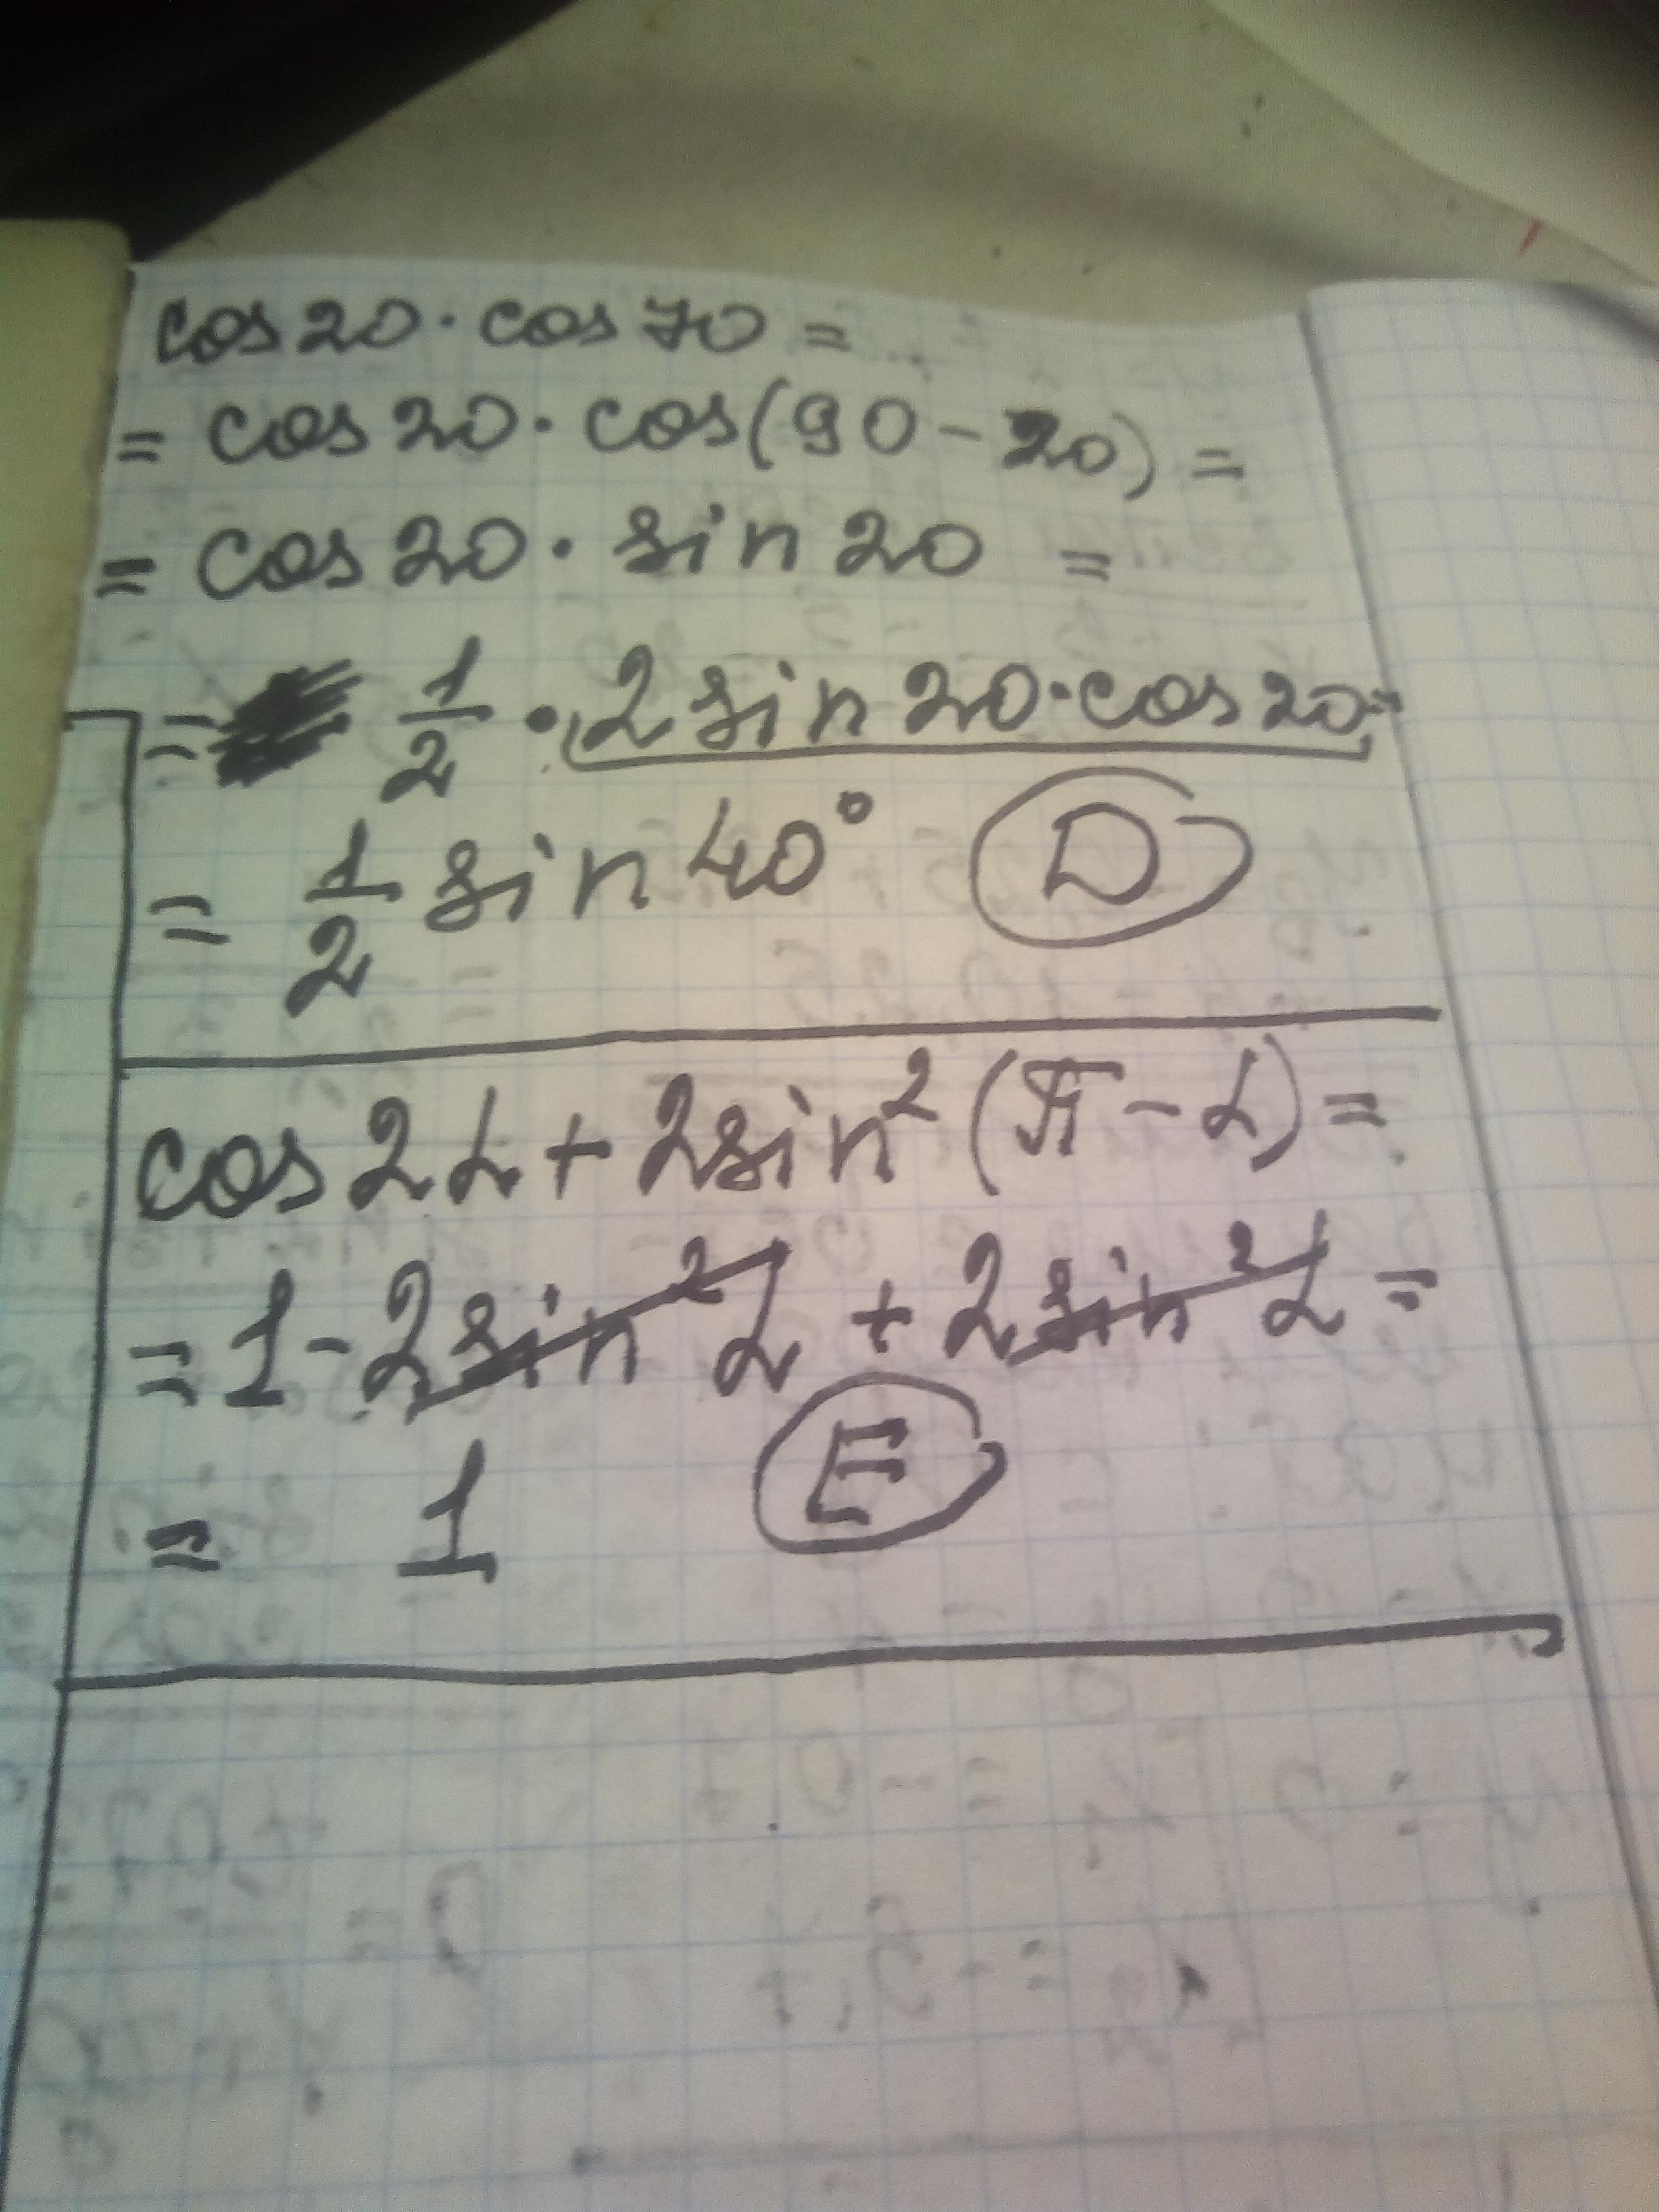 cos 20 · cos 70 =
= cos 20 · cos(90 - 20) =
= cos 20 · sin 20 =
= 1/2 · 2 sin 20 · cos 20 =
= 1/2 sin 40° D
cos 2α + 2 sin² (π - α) =
= 1 - 2 sin² α + 2 sin² α =
= 1 E